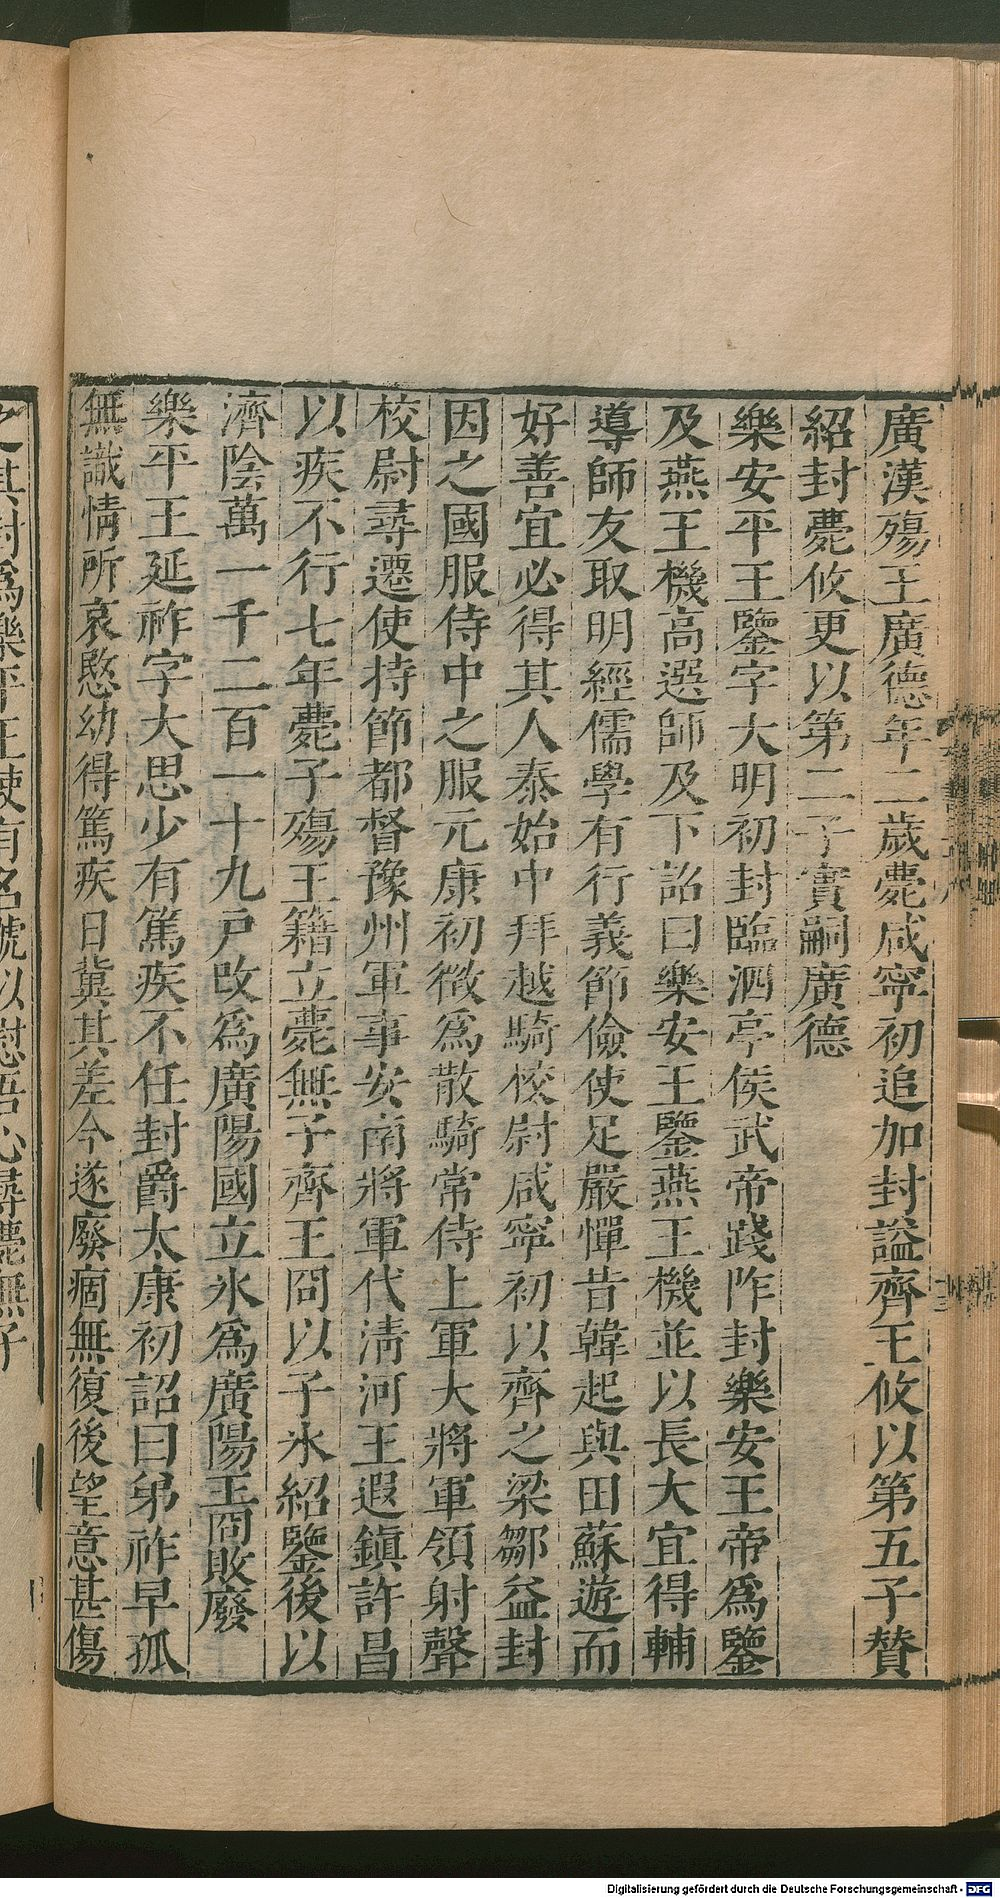 廣漢殤王廣德年二歲薨咸寧初追加封諡齊王攸以第五子贊
紹封薨攸更以第二子寔嗣廣德
樂安平王鑒字大明初封臨泗亭侯武帝踐阼封樂安王帝爲鑒
及燕王機高選師友下詔曰樂安王鑒燕王機並以長大宜得輔
導師友取明經儒學有行義節儉使足嚴憚昔韓起與田蘇遊而
好善宜必得其人泰始中拜越騎校尉咸寧初以齊之梁鄒益封
因之國服侍中之服元康初徵爲散騎常侍上軍大將軍領射聲
校尉尋遷使持節都督豫州軍事安南將軍代清河王遐鎮許昌
以疾不行七年薨子殤王籍立薨無子齊王冏以子氷紹鑒後以
濟陰萬一千二百一十九戶改爲廣陽國立氷爲廣陽王冏敗廢
樂平王延祚字大思少有篤疾不任封爵太康初詔曰弟祚早孤
無識情所哀愍幼得篤疾日冀其差今遂廢痼無復後望意甚傷
之其封爲樂平王使有名號以慰吾心尋薨無子
Digitalisierung gefördert durch die Deutsche Forschungsgemeinschaft - DFG